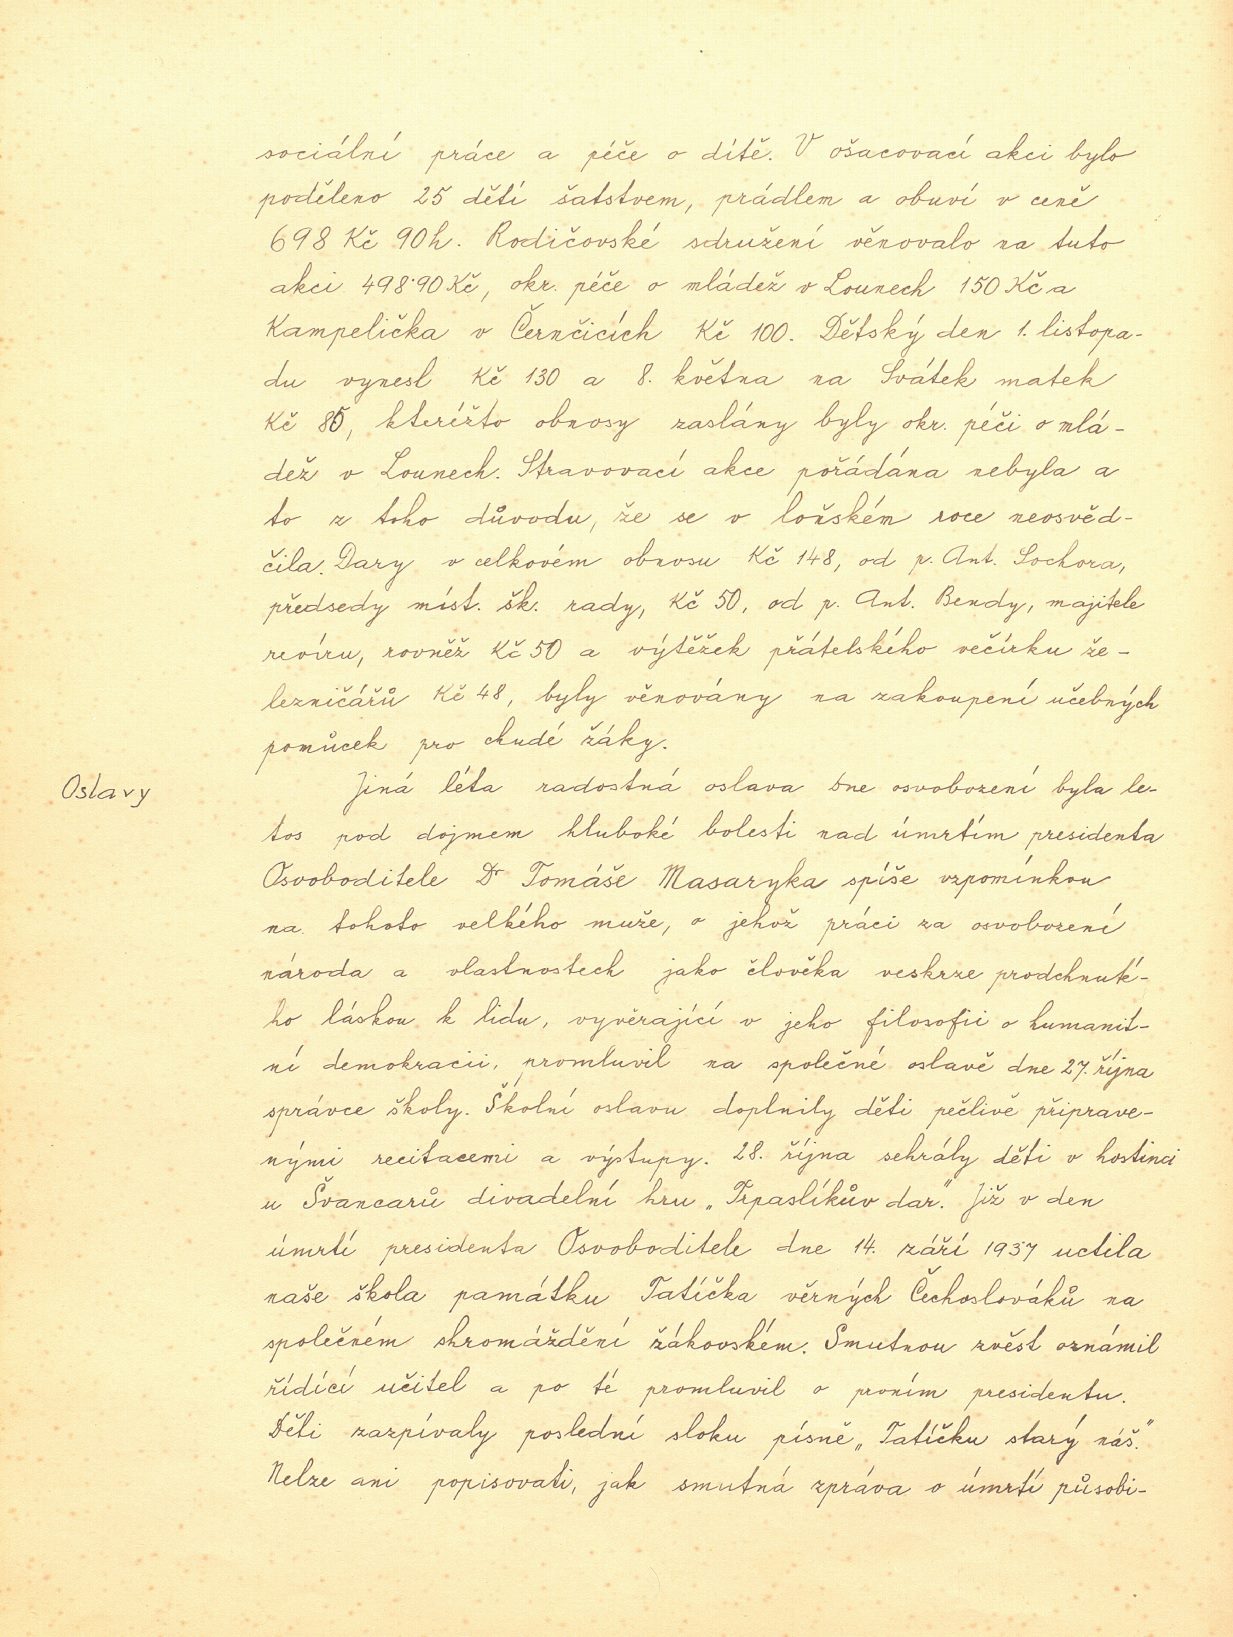 sociální práce a péče o dítě. V ošacovací akci bylo
poděleno 25 dětí šatstvem, prádlem a obuví v ceně
698 Kč 90h. Rodičovské sdružení věnovalo na tuto
akci 498·90 Kč, okr. péče o mládež v Lounech 150 Kč a
Kampelička v Černčicích Kč 100. Dětský den 1. listopa-
du vynesl Kč 130 a 8. května na Svátek matek
Kč 85, kterížto obnosy zaslány byly okr. péči o mlá-
dež v Lounech. Stravovací akce pořádána nebyla a
to z toho důvodu, že se v loňském roce neosvěd-
čila. Dary v celkovém obnosu Kč 148, od p. Ant. Sochora,
předsedy míst. šk. rady, Kč 50, od p. Ant. Bendy, majitele
revíru, rovněž Kč 50 a výtěžek přátelského večírku že-
lezničářů Kč 48, byly věnovány na zakoupení učebných
pomůcek pro chudé žáky.
Oslavy Jiná léta radostná oslava Dne osvobození byla le-
tos pod dojmem hluboké bolesti nad úmrtím presidenta
Osvoboditele Dr Tomáše Masaryka spíše vzpomínkou
na tohoto velkého muže, o jehož práci za osvobození
národa a vlastnostech jako člověka veskrze prodchnuté-
ho láskou k lidu, vyvěrající v jeho filosofii o humanit-
ní demokracii, promluvil na společné oslavě dne 27. října
správce školy. Školní oslavu doplnily děti pečlivě připrave-
nými recitacemi a výstupy. 28. října sehrály děti v hostinci
u Švancarů divadelní hru „Trpaslíkův dar." Již v den
úmrtí presidenta Osvoboditele dne 14. září 1937 uctila
naše škola památku Tatíčka věrných Čechoslováků na
společném shromáždění žákovském. Smutnou zvěst oznámil
řídící učitel a po té promluvil o prvním presidentu.
Děti zazpívaly poslední sloku písně „Tatíčku starý náš."
Nelze ani popisovati, jak smutná zpráva o úmrtí působi-